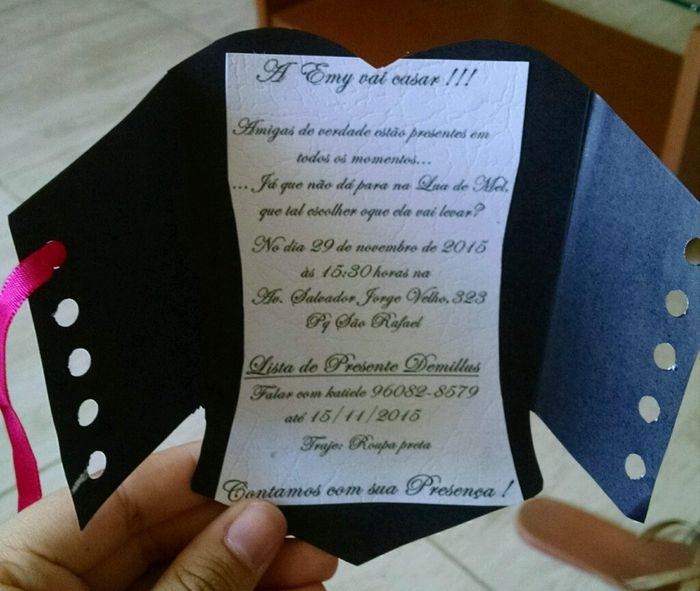 A Emy vai casar !!!
Amigas de verdade estão presentes em
todos os momentos...
...Já que não dá para na Lua de Mel,
que tal escolher oque ela vai levar?
No dia 29 de novembro de 2015
às 15:30 horas na
Av. Salvador Jorge Velho, 323
Pq São Rafael
Lista de Presente Demillus
Falar com katiele 96082-8579
até 15/11/2015
Traje: Roupa preta
Contamos com sua Presença !